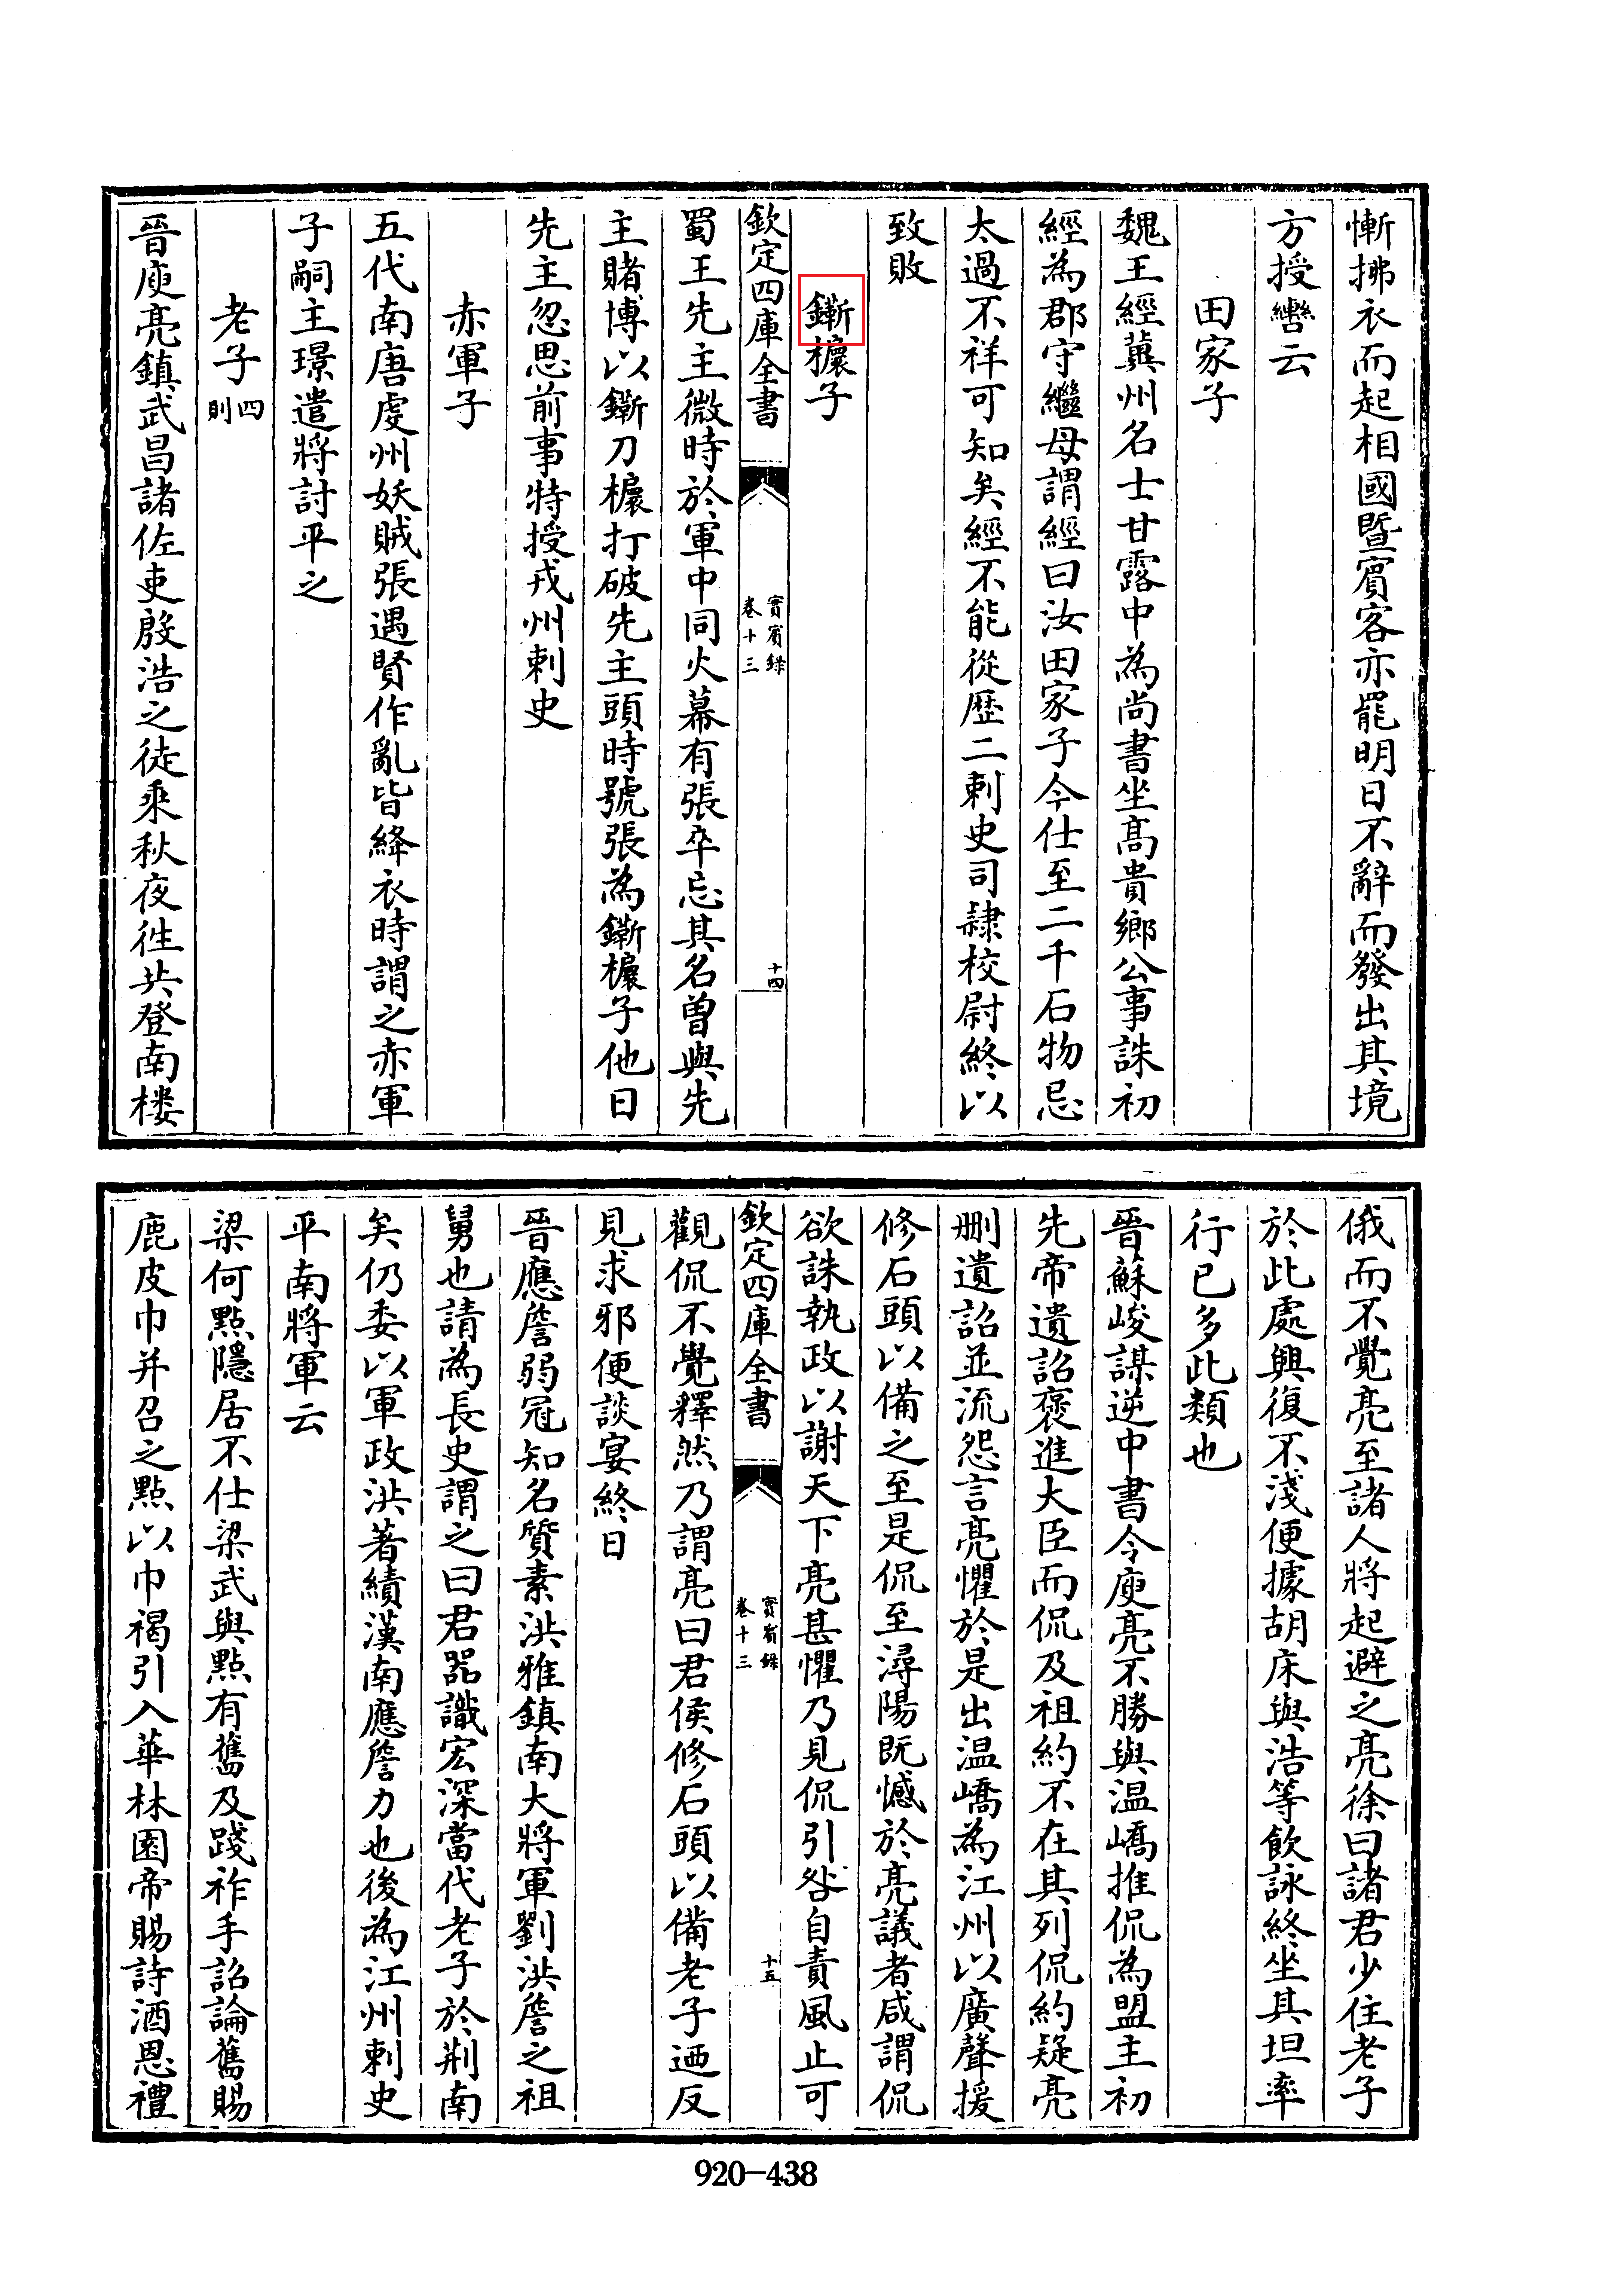 慚拂衣而起相國暨賓客亦罷明日不辭而發出其境
方授轡云
田家子
魏王經冀州名士甘露中為尚書坐髙貴鄉公事誅初
經為郡守繼母謂經曰汝田家子今仕至二千石物忌
太過不祥可知矣經不能從歴二刺史司隷校尉終以
致敗
鏩欀子
欽定四庫全書
實賓録
卷十三
十四
蜀王先主微時於軍中同火幕有張卒忘其名曽與先
主賭博以鏩刀欀打破先主頭時號張為鏩欀子他日
先主忽思前事特授戎州刺史
赤軍子
五代南唐䖍州妖賊張遇賢作亂皆絳衣時謂之赤軍
子嗣主璟遣將討平之
老子四則
晉庾亮鎮武昌諸佐吏殷浩之徒乘秋夜徃共登南樓
俄而不覺亮至諸人將起避之亮徐曰諸君少住老子
於此處興復不淺便據胡床與浩等飲詠終坐其坦率
行已多此類也
晉蘇峻謀逆中書令庾亮不勝與温嶠推侃為盟主初
先帝遺詔褒進大臣而侃及祖約不在其列侃約疑亮
刪遺詔並流怨言亮懼於是出温嶠為江州以廣聲援
修石頭以備之至是侃至潯陽既憾於亮議者咸謂侃
欲誅執政以謝天下亮甚懼乃見侃引咎自責風止可
欽定四庫全書
實賓録
卷十三
十五
觀侃不覺釋然乃謂亮曰君侯修石頭以備老子迺反
見求邪便談宴終日
晉應詹弱冠知名質素洪雅鎮南大將軍劉洪詹之祖
舅也請為長史謂之曰君器識宏深當代老子於荆南
矣仍委以軍政洪著績漢南應詹力也後為江州刺史
平南將軍云
梁何㸃隱居不仕梁武與㸃有舊及踐祚手詔論舊賜
鹿皮巾并召之㸃以巾褐引入華林園帝賜詩酒恩禮
920-438